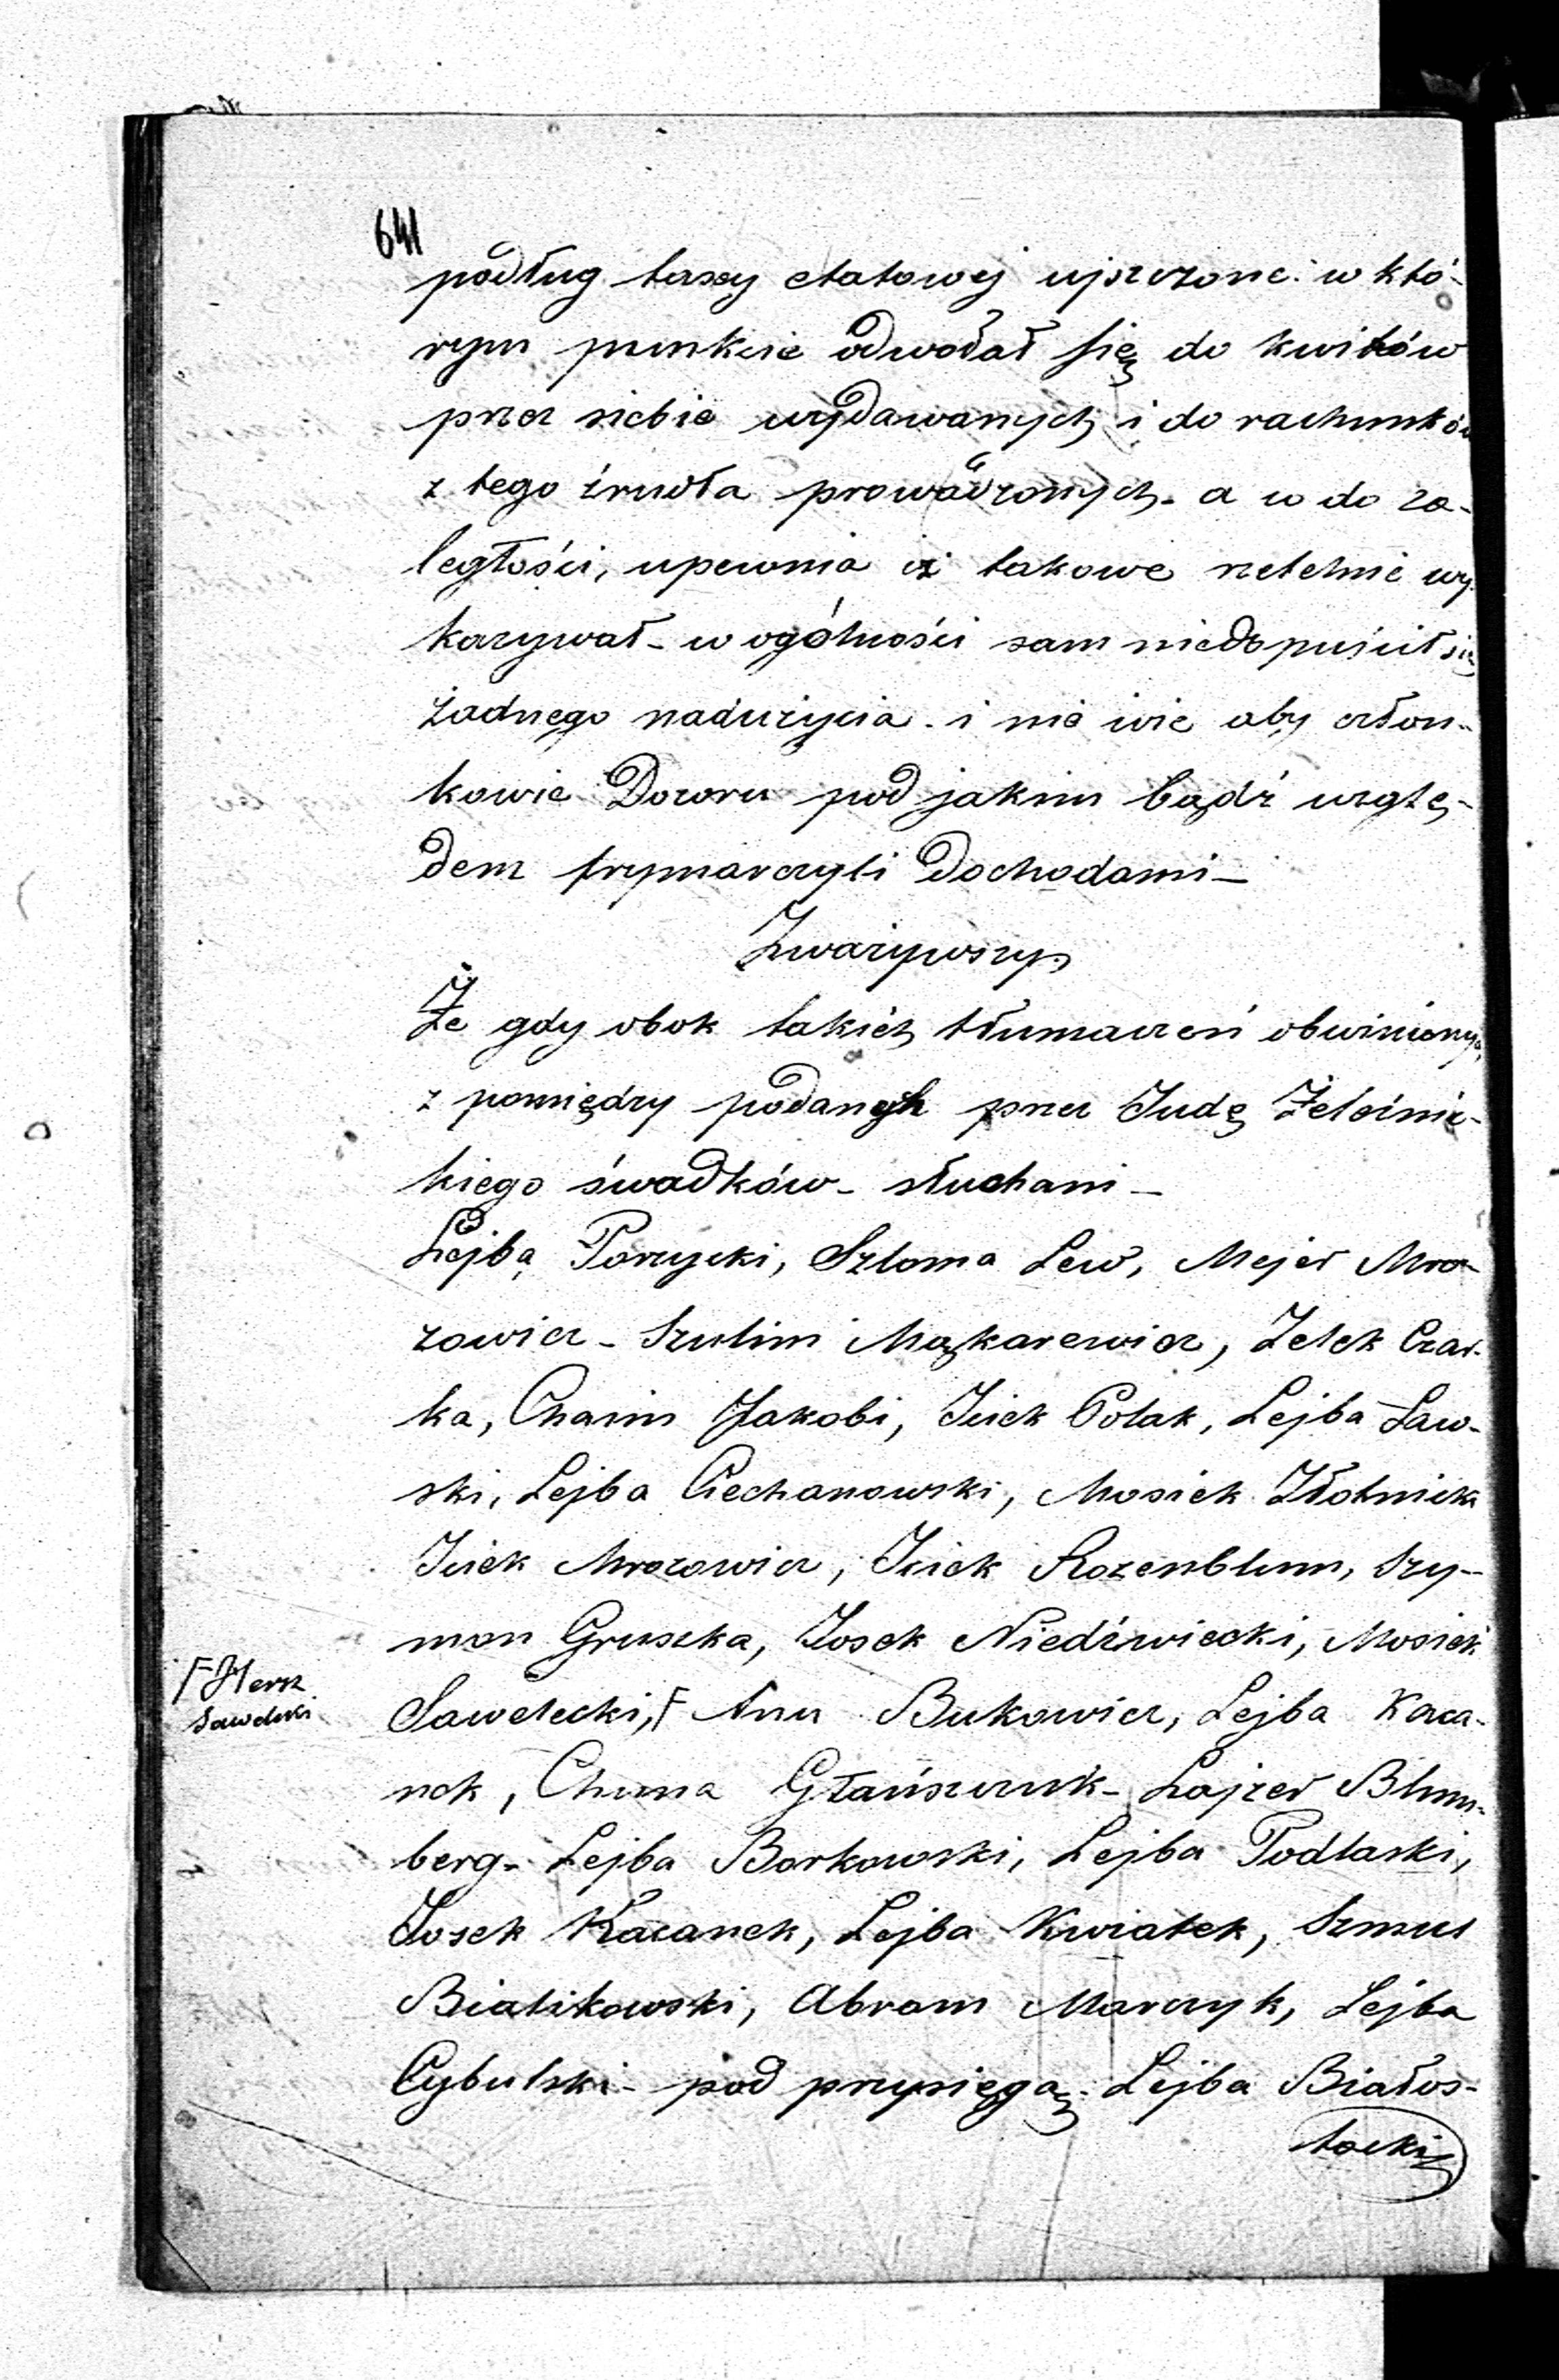 641
podług taxy etatowej ujszczone: w któ-
rym punkcie odwołał się do kwitów
przez siebie wydawanych i do rachunków
z tego źrudła prowadzonych - a w do za-
ległości, upewnia iż takowe rzetelnie wy-
kazywał - w ogólności sam niedopuścił się
żadnego nadużycia - i nie wie aby człon-
kowie Dozoru pod jakim bądź wzglę-
dem frymarczyli dochodami -
Zważywszy
Że gdy obok takich tłumaczeń obwinionych
z pomiędzy podanych przez Judę Żeleźnic-
kiego świadków - słuchani -
Lejba Porzycki, Szloma Lew, Mejer Mro-
zowicz - Szulim Mąkarewicz, Zelek Czar-
ka, Chaim Jakobi, Iciek Polak, Lejba Law-
ski, Lejba Ciechanowski, Mosiek Złotnick
Iciek Mrozowicz, Icick Rozenblum, Szy-
mon Gruszka, Josek Niedźwiecki, Mosiek
F Hersz
Sawelecki, F Bukowicz, Lejba Kaca-
nek, Chuna - Lajzer Blum-
berg - Lejba Borkowski, Lejba Podlaski,
Josek Kacanek, Lejba Kwiatek, Szmul
Bialikowski, Abram Marczyk, Lejba
Cybulski - pod przysięgą - Lejba Białos-
tocki